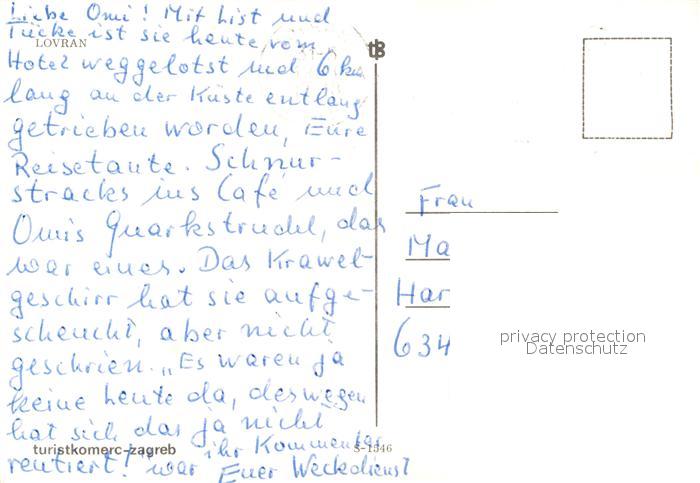 Liebe Omi! Mit List und
Tücke ist sie heute vom
LOVRAN
Hotel weggelotst und 6 km
lang an der Küste entlang
getrieben worden, Eure
Reisetante. Schnur-
stracks ins Café und
Omis Quarkstrudel, das
war eines. Das Krawel-
geschirr hat sie aufge-
scheucht, aber nicht
geschrien. „Es waren ja
keine heute da, deswegen
hat sich das ja nicht
rentiert!" war
ihr Kommentar
Euer Weckdienst
turistkomerc-zagreb
S-1546
tB
Frau
Ma
Har
634
privacy protection
Datenschutz